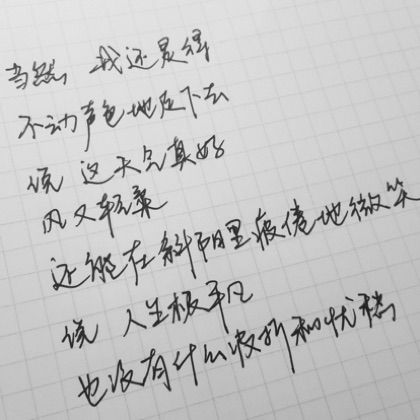 当然 我还是得
不动声色地走下去
说 这天气真好
风又轻柔
还能在斜阳里疲倦地微笑
说 人生极平凡
也没有什么波折和忧愁